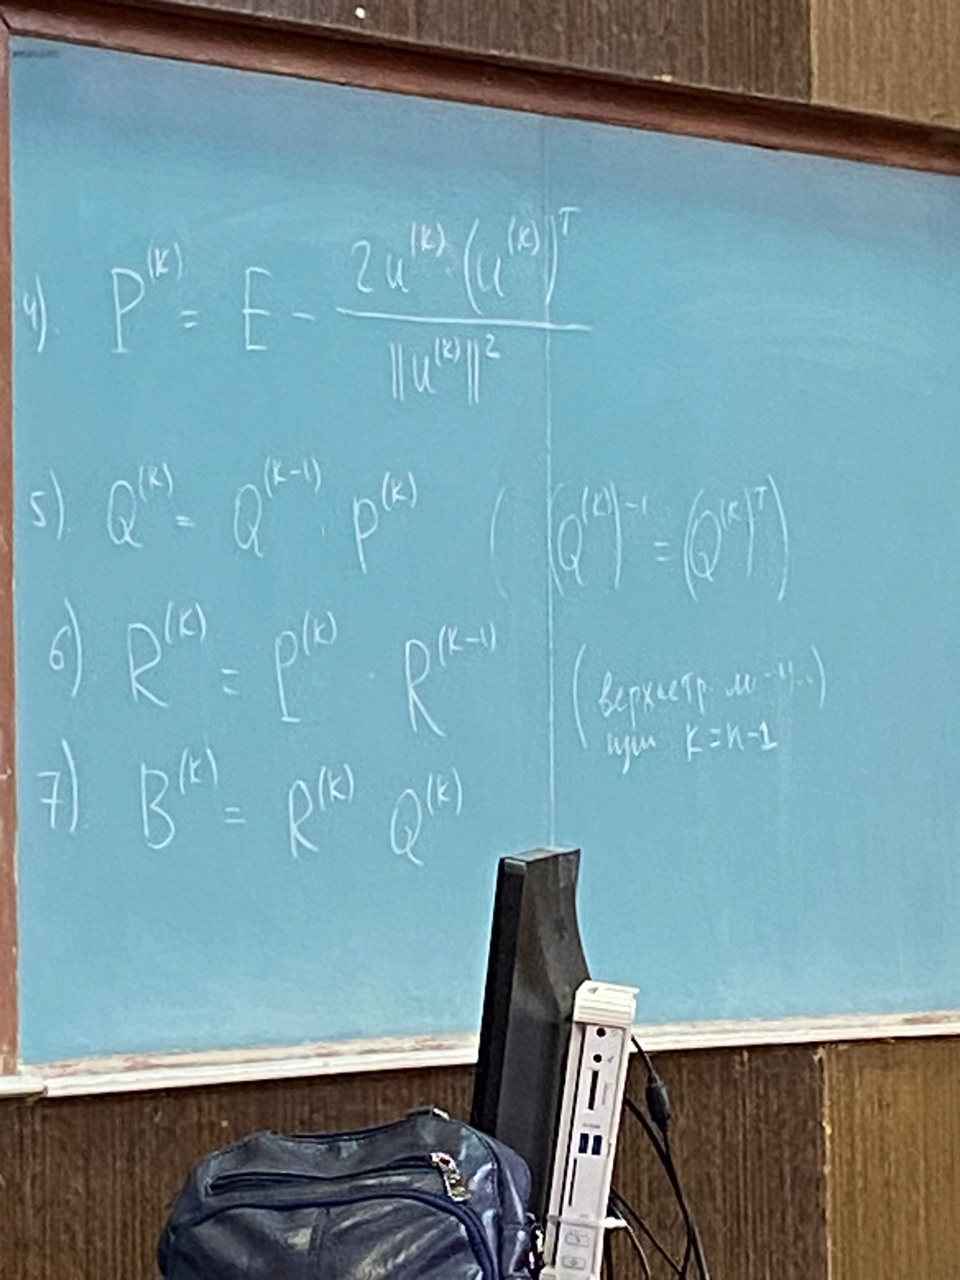 4). P^(k) = E - 2u^(k) · (u^(k))^T / ||u^(k)||^2
5). Q^(k) = Q^(k-1) · P^(k) ( (Q^(k))^-1 = (Q^(k))^T )
6). R^(k) = P^(k) · R^(k-1)
при k = n-1
7). B^(k) = R^(k) · Q^(k)